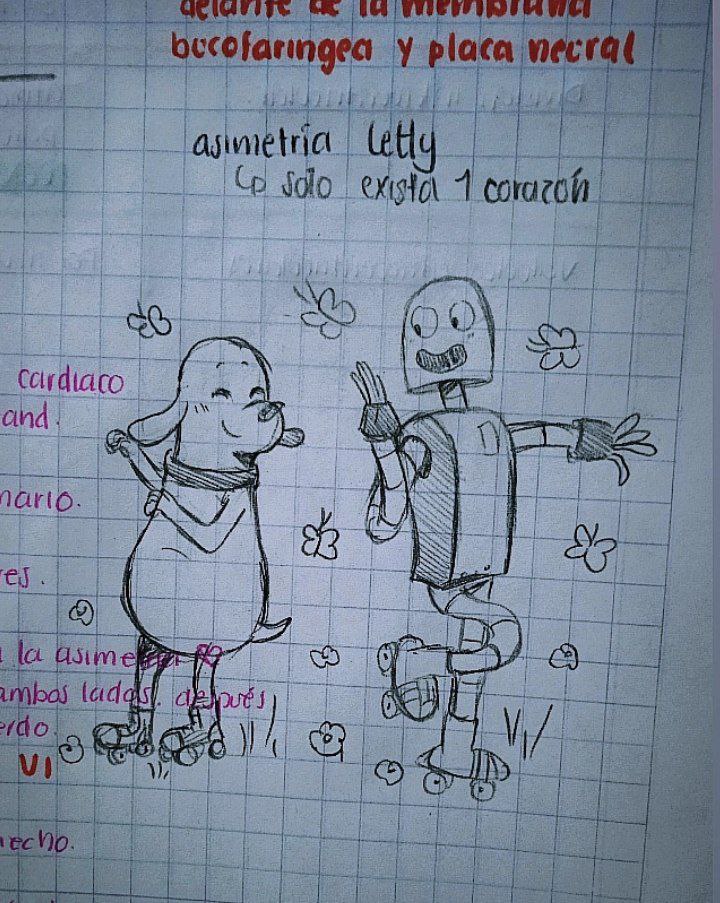 delante de la membrana
bucofaríngea y placa neural
asimetría Letty
Lo solo exista 1 corazón
cardiaco
and.
nario.
es.
la asime
ambos lados. después
erdo
VI
echo.